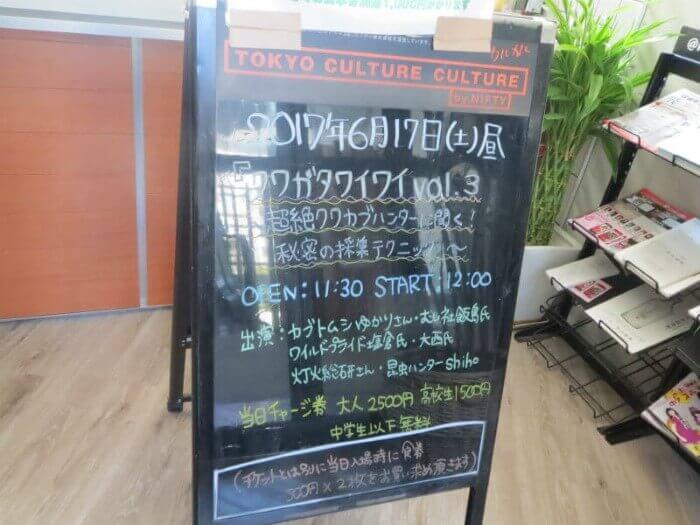 1,000円かかります
TOKYO CULTURE CULTURE
by NIFTY
2017年6月17日(土)昼
『クワガタワイワイvol.3
超絶クワカブハンターに聞く!
秘密の採集テクニック〜
OPEN:11:30 START:12:00
出演:カブトムシゆかりさん・むし社飯島氏
ワイルドプライド塩倉氏・大西氏
灯火総研さん・昆虫ハンターshiho
当日チャージ券 大人2500円 高校生1500円
中学生以下無料
(チケットとは別に当日入場時に食券
500円×2枚をお買い求め頂きます)